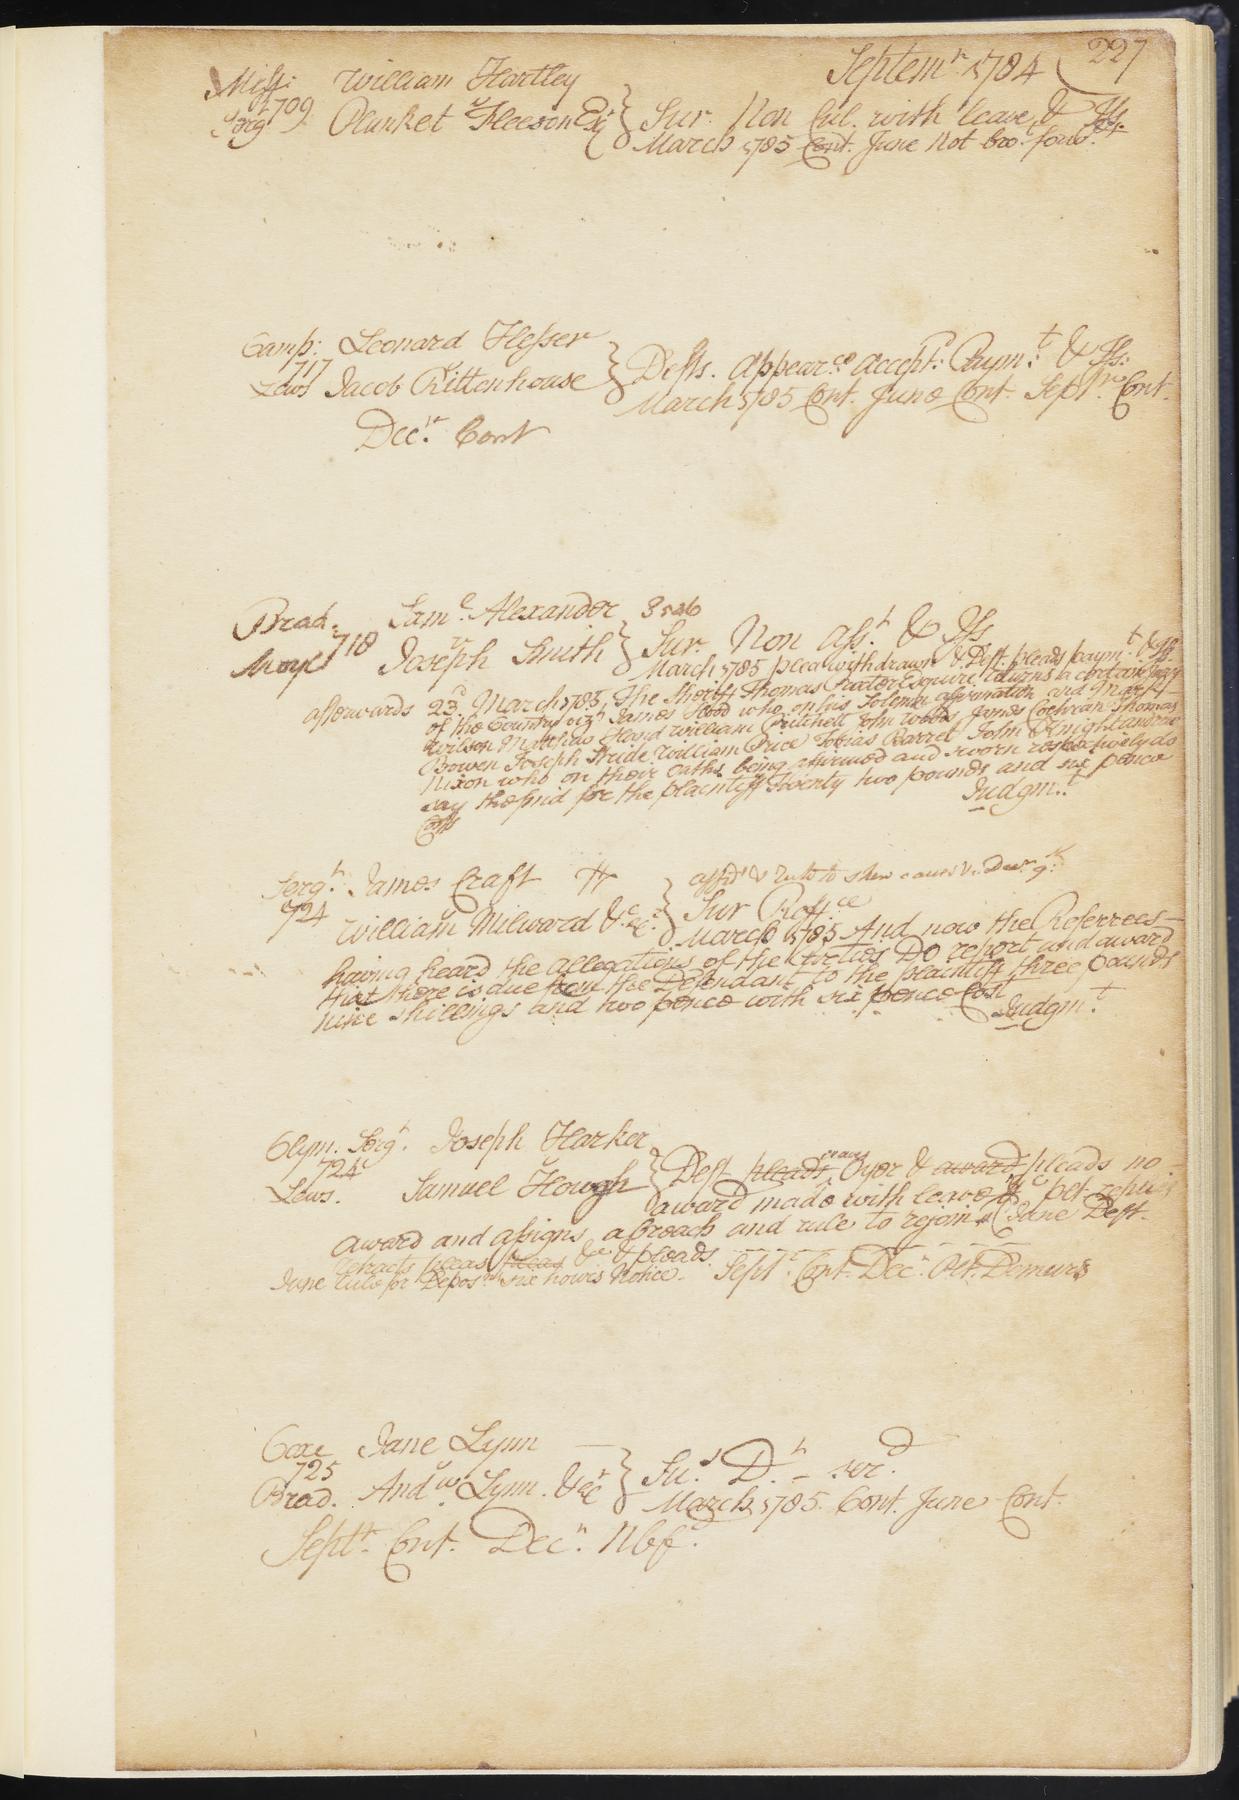 Septemr. 1784 227
Miff: William Hartley
709
Serg. v Plunket Fleeson Esqr } Sur. Non Cul. with leave, & Iss.
March 1785 Cont. June Not bro. forwd.
Camp: Leonard Hesser
717
Lews Jacob Rittenhouse } Defts. appearce. accept: Paymt. & Iss:
March 1785 Cont. June Cont. Septr. Cont.
Decr. Cont
Brad. Saml. Alexander
718
Moyl v Joseph Smith } Sur. Non Asst. & Iss
March 1785 plea withdrawn & Deft. pleads paymt. & Iss
afterwards 23d. March 1785, The Sheriff Thomas Proctor Esquire, returns a certain Jury
of the Country vizt. James Hood who on his Solemn affirmation and
Wilson Matthew Hand William Pritchett John Woods James Cochran Thomas
Bowen Joseph Stride William Price Tobias Barret John Knight and
Nixon who on their oaths being affirmed and sworn respectively do
say they find for the plaintiff Twenty two pounds and six pence
Costs Judgmt.
Sergt. James Craft affidt & rule to shew cause
724
v William Milward &c. } Sur
March 1785 And now the Referrees
having heard the allegations of the parties Do report and award
that there is due from the Defendant to the plaintiff three pounds
nine shillings and two pence with six pence Cost
Judgmt.
Clym. Sergt. Joseph Harker
724 v
Lews. Samuel Hough } Deft pleads craves Oyer & award pleads no
award made with leave &c plt replies
award and assigns a breach and rule to rejoin June Deft.
retracts pleas pleas &c & pleads
June rule for Deposns. six hours Notice. Septr. Cont. Decr. Plt. Demurs
Coxe Jane Lynn
725 v
Brad. Andw. Lynn. &c } Su.
March 1785. Cont. June Cont.
Septr. Cont. Decr. Nbfd.